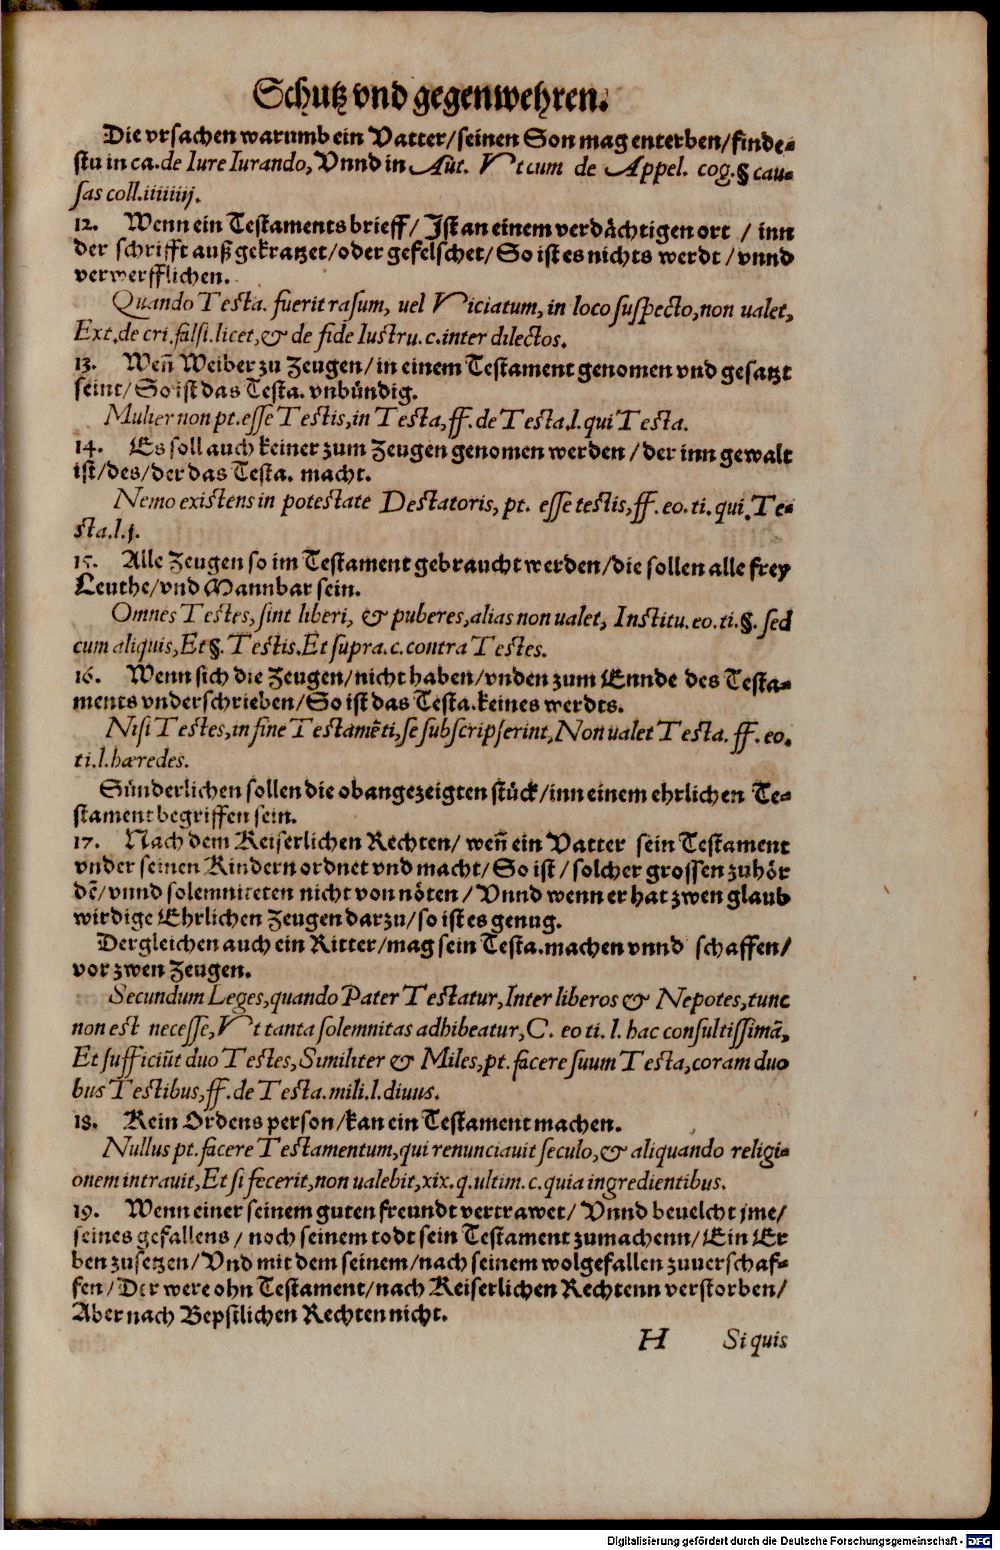 Schutz vnd gegenwehren.
Die vrsachen warumb ein Vatter/seinen Son mag enterben/finde-
stu in ca. de Iure Iurando, Vnnd in Aut. Vt cum de Appel. cog. § cau-
sas coll. iiiiiij.
12. Wenn ein Testaments brieff/ Jst an einem verdächtigen ort / inn
der schrifft außgekratzet/oder gefelschet/ So ist es nichts werdt / vnnd
verwerfflichen.
Quando Testa. fuerit rasum, uel Viciatum, in loco suspecto, non ualet,
Ext. de cri. falsi. licet, & de fide Iustru. c. inter dilectos.
13. Weñ Weiber zu Zeugen/ in einem Testament genomen vnd gesatzt
seint/ So ist das Testa. vnbündig.
Mulier non pt. esse Testis, in Testa, ff. de Testa, l. qui Testa.
14. Es soll auch keiner zum Zeugen genomen werden / der inn gewalt
ist/des/der das Testa. macht.
Nemo existens in potestate Destatoris, pt. esse testis, ff. eo. ti. qui. Te-
sta. l. j.
15. Alle Zeugen so im Testament gebraucht werden/die sollen alle frey
Leuthe/vnd Mannbar sein.
Omnes Testes, sint liberi, & puberes, alias non ualet, Institu. eo. ti. §. sed
cum aliquis, Et §. Testis. Et supra. c. contra Testes.
16. Wenn sich die Zeugen/nicht haben/vnden zum Ennde des Testa-
ments vnderschrieben/ So ist das Testa. keines werdts.
Nisi Testes, in fine Testamẽti, se subscripserint, Non ualet Testa. ff. eo.
ti. l. hæredes.
Sünderlichen sollen die obangezeigten stück/inn einem ehrlichen Te-
stament begriffen sein.
17. Nach dem Keiserlichen Rechten/ weñ ein Vatter sein Testament
vnder seinen Kindern ordnet vnd macht/ So ist / solcher grossen zuhör
dẽ/vnnd solemniteten nicht von nöten/ Vnnd wenn er hat zwen glaub
wirdige Ehrlichen Zeugen darzu/so ist es genug.
Dergleichen auch ein Ritter/mag sein Testa. machen vnnd schaffen/
vor zwen Zeugen.
Secundum Leges, quando Pater Testatur, Inter liberos & Nepotes, tunc
non est necesse, Vt tanta solemnitas adhibeatur, C. eo ti. l. hac consultissimã,
Et sufficiũt duo Testes, Similiter & Miles, pt. facere suum Testa, coram duo
bus Testibus, ff. de Testa. mili. l. diuus.
18. Kein Ordens person/kan ein Testament machen.
Nullus pt. facere Testamentum, qui renunciauit seculo, & aliquando religi-
onem intrauit, Et si fecerit, non ualebit, xix. q. ultim. c. quia ingredientibus.
19. Wenn einer seinem guten freundt vertrawet/ Vnnd beuelcht jme/
seines gefallens / noch seinem todt sein Testament zumachenn/ Ein Er
ben zusetzen/ Vnd mit dem seinem/nach seinem wolgefallen zuuerschaf-
fen / Der were ohn Testament/nach Keiserlichen Rechtenn verstorben/
Aber nach Bepstlichen Rechten nicht.
H Si quis
Digitalisierung gefördert durch die Deutsche Forschungsgemeinschaft - DFG